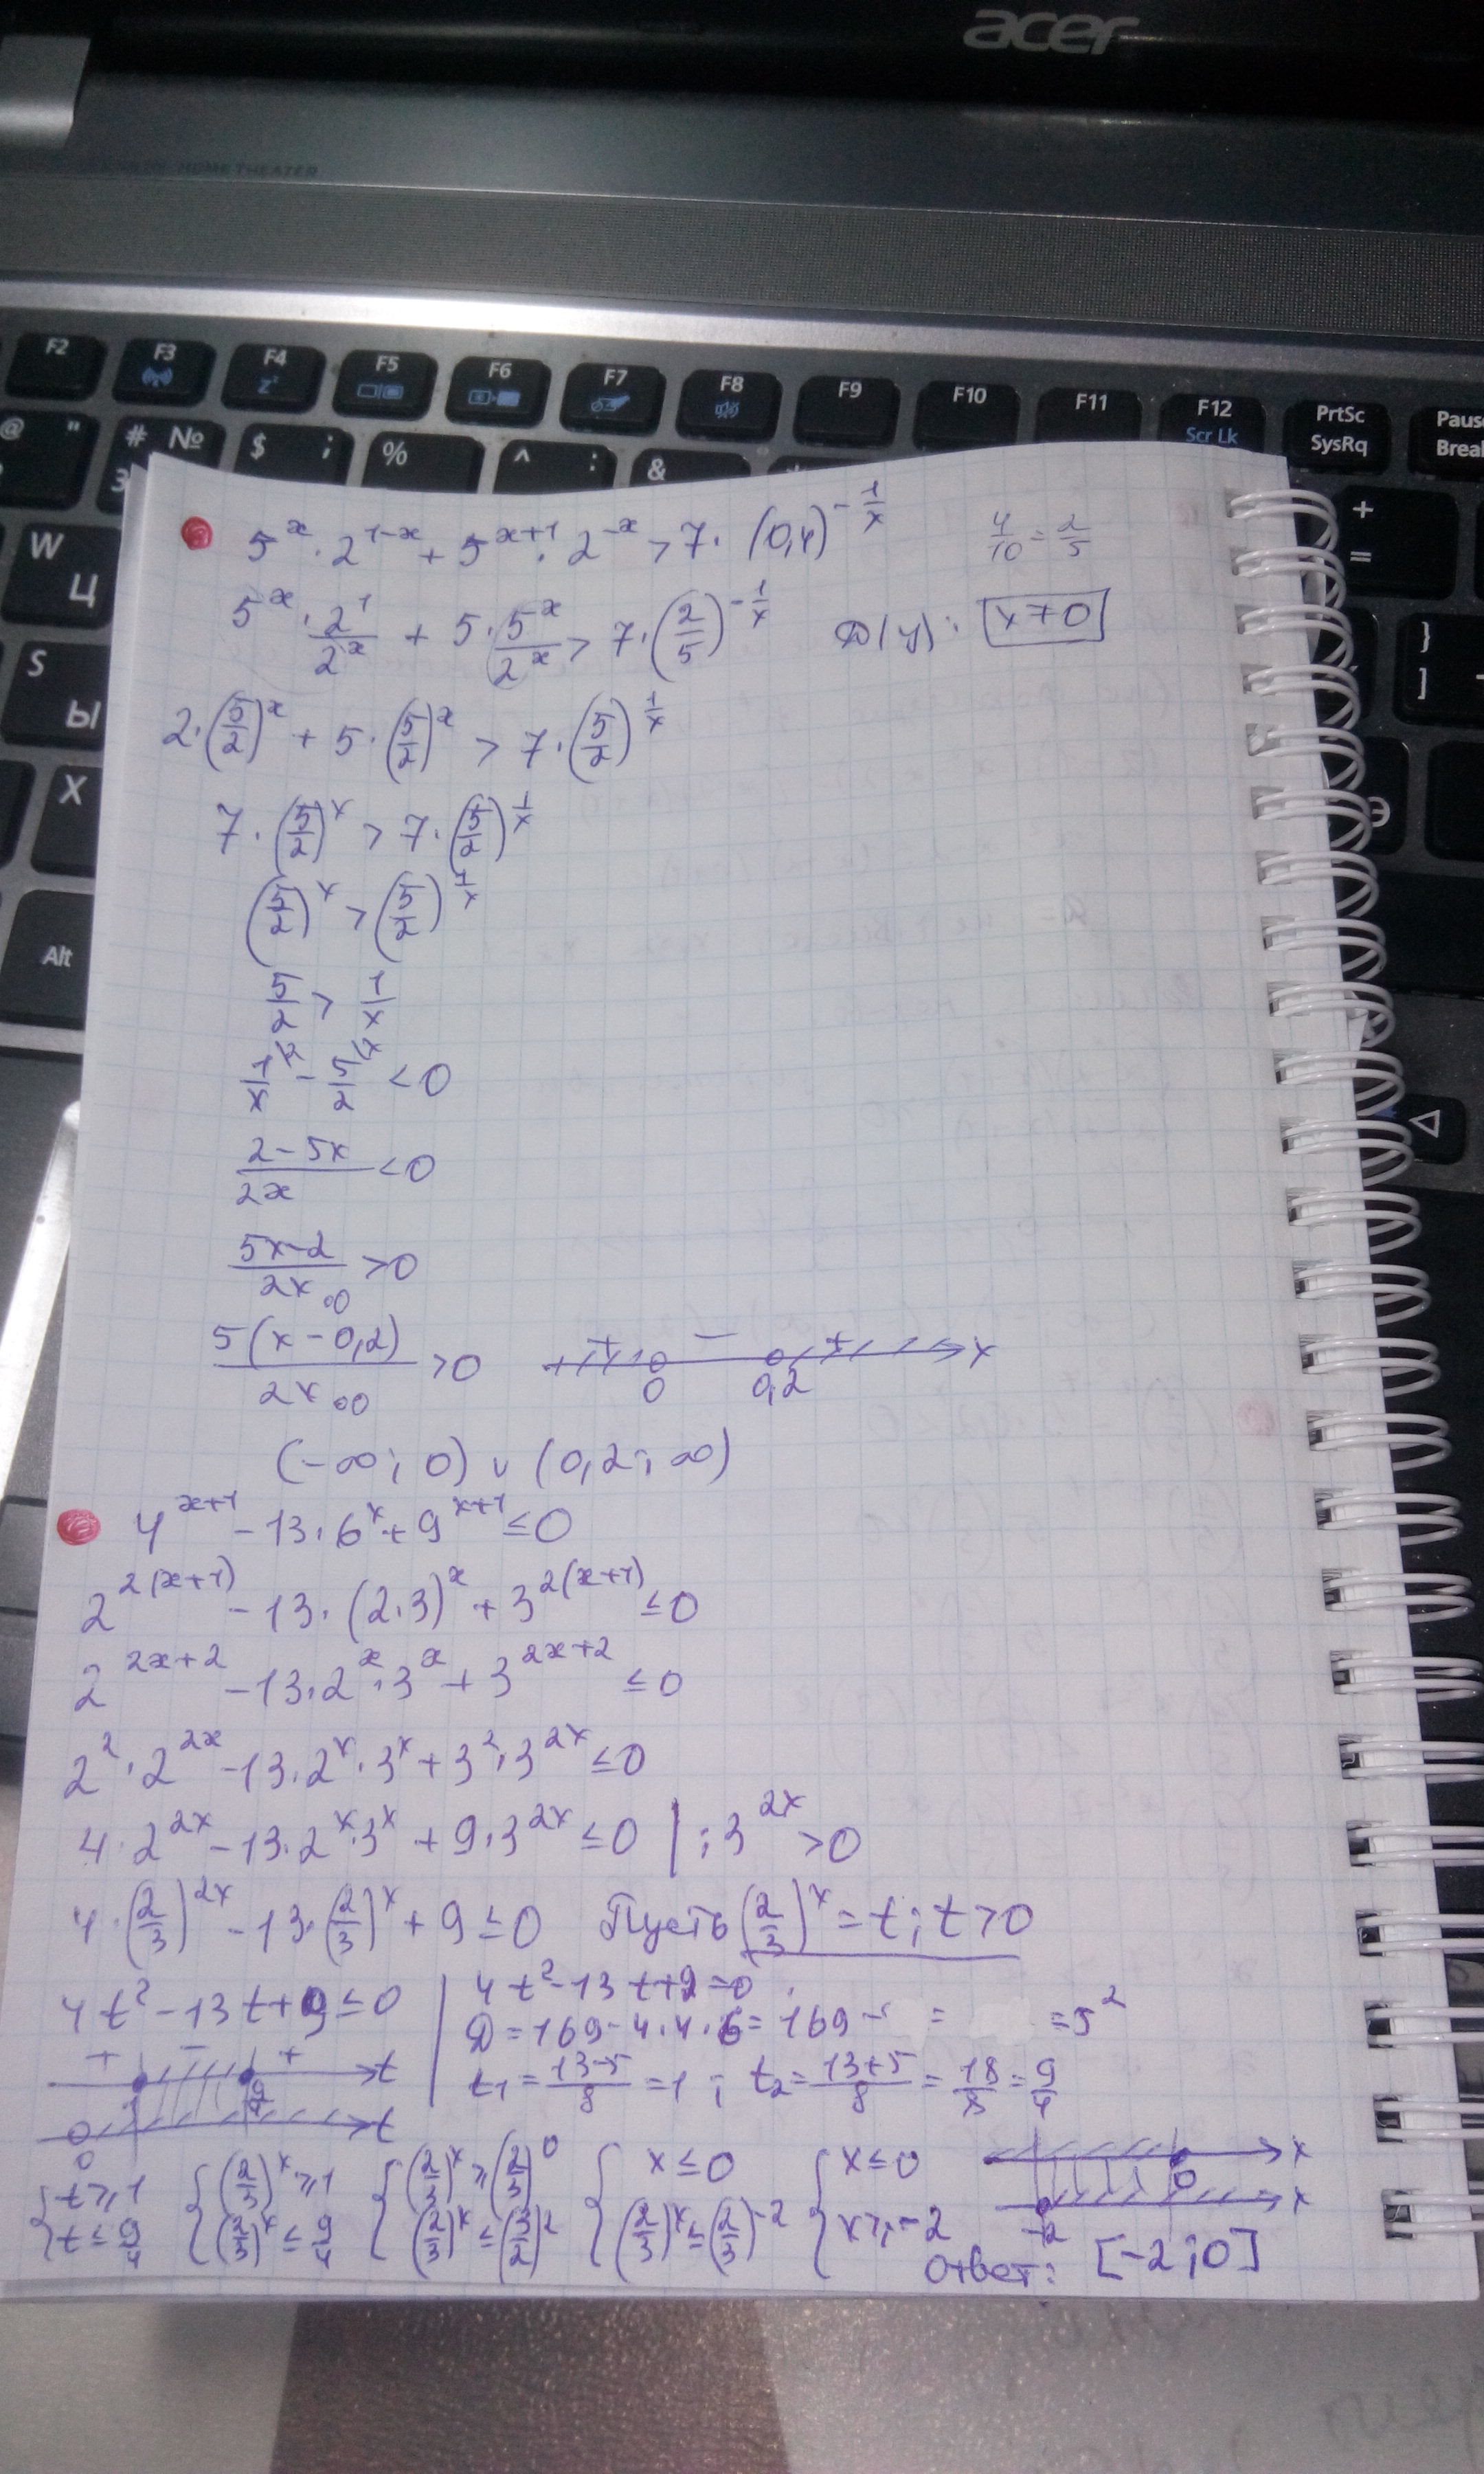 acer
HOME THEATER
F2 F3 F4 F5 F6 F7 F8 F9 F10 F11 F12 PrtSc Pause
Scr Lk SysRq Break
@ " # № $ ; % ^ : & + =
3
W Ц
S Ы
X
Alt
} ]
5^x · 2^(1-x) + 5^(x+1) · 2^(-x) > 7 · (0,4)^(-1/x) 4/10 = 2/5
5^x · 2^1/2^x + 5 · 5^x/2^x > 7 · (2/5)^(-1/x) D(y): x ≠ 0
2 · (5/2)^x + 5 · (5/2)^x > 7 · (5/2)^(1/x)
7 · (5/2)^x > 7 · (5/2)^(1/x)
(5/2)^x > (5/2)^(1/x)
5/2 > 1/x
1/x^\2 - 5/2^\x < 0
(2 - 5x)/2x < 0
(5x - 2)/2x > 0
≠0
5(x - 0,2)/2x > 0 + − + x
≠0 0 0,2
(-∞; 0) ∪ (0,2; ∞)
4^(x+1) - 13 · 6^x + 9^(x+1) ≤ 0
2^(2(x+1)) - 13 · (2·3)^x + 3^(2(x+1)) ≤ 0
2^(2x+2) - 13 · 2^x · 3^x + 3^(2x+2) ≤ 0
2^2 · 2^(2x) - 13 · 2^x · 3^x + 3^2 · 3^(2x) ≤ 0
4 · 2^(2x) - 13 · 2^x · 3^x + 9 · 3^(2x) ≤ 0 | : 3^(2x) > 0
4 · (2/3)^(2x) - 13 · (2/3)^x + 9 ≤ 0 Пусть (2/3)^x = t; t > 0
4t^2 - 13t + 9 ≤ 0 | 4t^2 - 13t + 9 = 0
D = 169 - 4·4·6 = 169 - = = 5^2
+ − + t t1 = (13-5)/8 = 1; t2 = (13+5)/8 = 18/8 = 9/4
1 9/4
0 t
{ t ≥ 1 { (2/3)^x ≥ 1 { (2/3)^x ≥ (2/3)^0 { x ≤ 0 { x ≤ 0 0 x
{ t ≤ 9/4 { (2/3)^x ≤ 9/4 { (2/3)^x ≤ (3/2)^2 { (2/3)^x ≤ (2/3)^(-2) { x ≥ -2 -2 x
Ответ: [-2; 0]